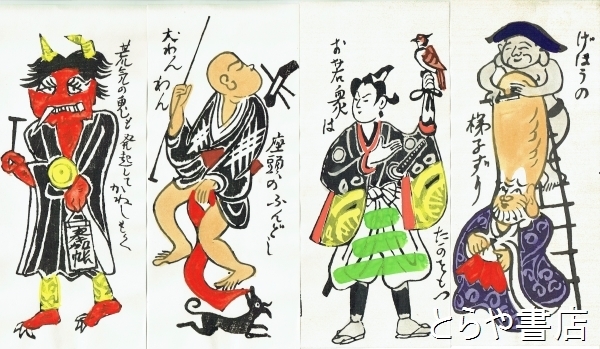 荒気の鬼も発起して
かねしもく
奉加帳
座頭のふんどし
犬わん
わん
お若衆は
げほうの
梯子ずり
とらや書店